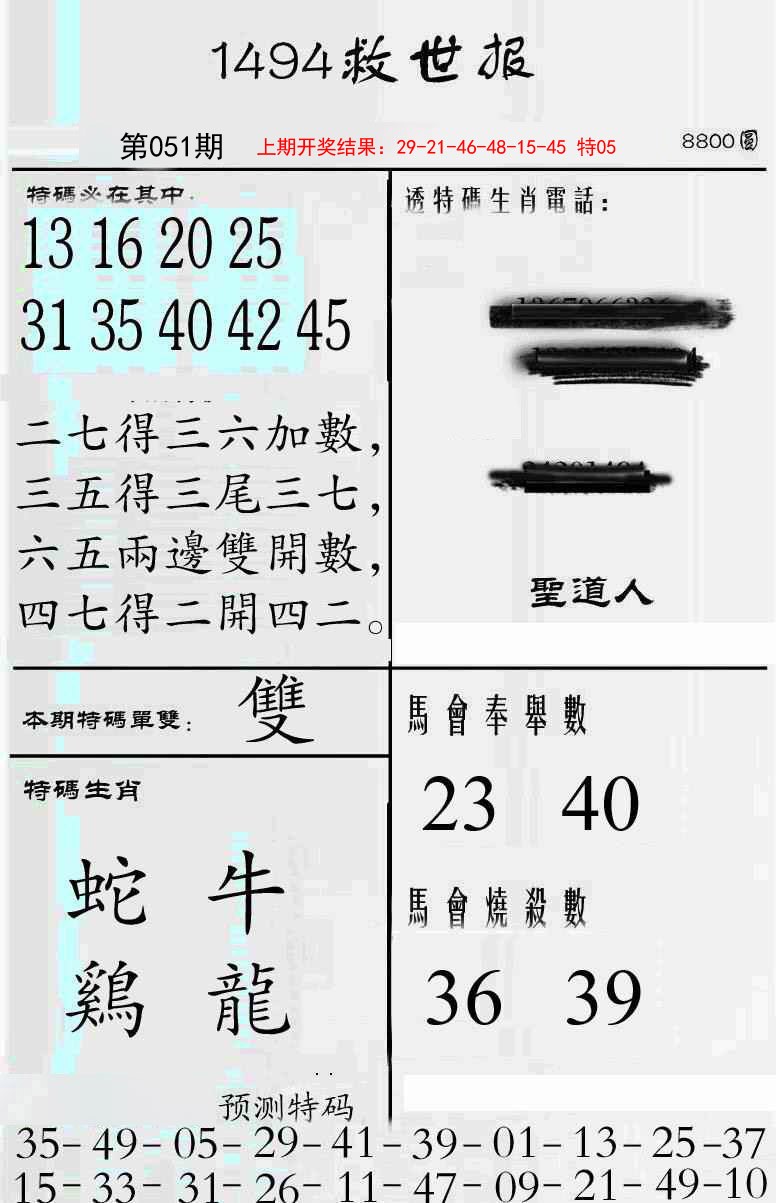 1494救世报
第051期
上期开奖结果：29-21-46-48-15-45 特05
8800圆
特碼必在其中.
13 16 20 25
31 35 40 42 45
二七得三六加數，
三五得三尾三七，
六五兩邊雙開數，
四七得二開四二。
透特碼生肖電話：
聖道人
本期特碼單雙：
雙
特碼生肖
蛇 牛
鷄 龍
馬會奉舉數
23 40
馬會燒殺數
36 39
预测特码
35-49-05-29-41-39-01-13-25-37
15-33-31-26-11-47-09-21-49-10